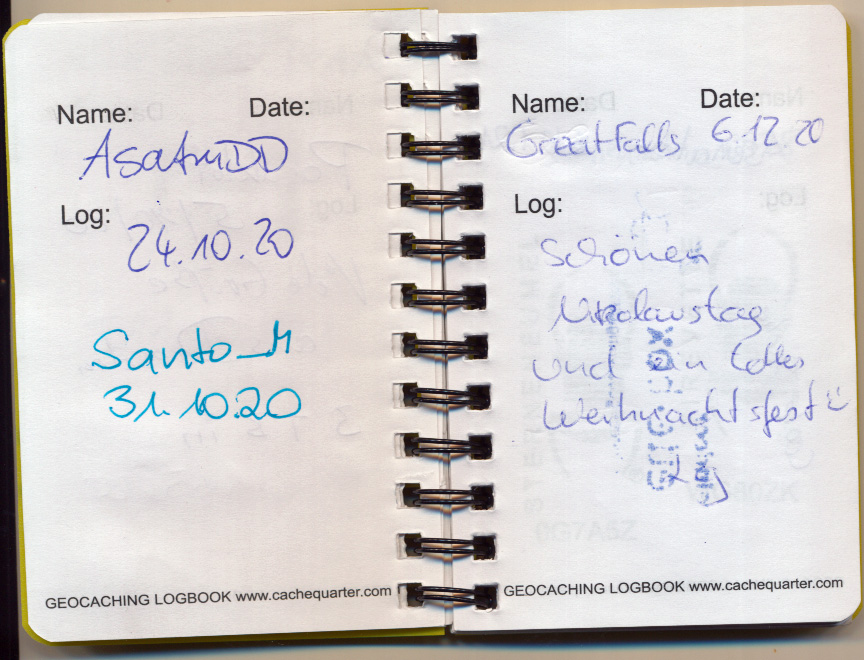 Name: Date:
AsatruDD
Log:
24.10.20
Santo_M
31.10.20
GEOCACHING LOGBOOK www.cachequarter.com
Name: Date:
GreatFalls 6.12.20
Log:
Schönen
Nikolaustag
und ein tolles
Weihnachtsfest
Lg
GEOCACHING LOGBOOK www.cachequarter.com